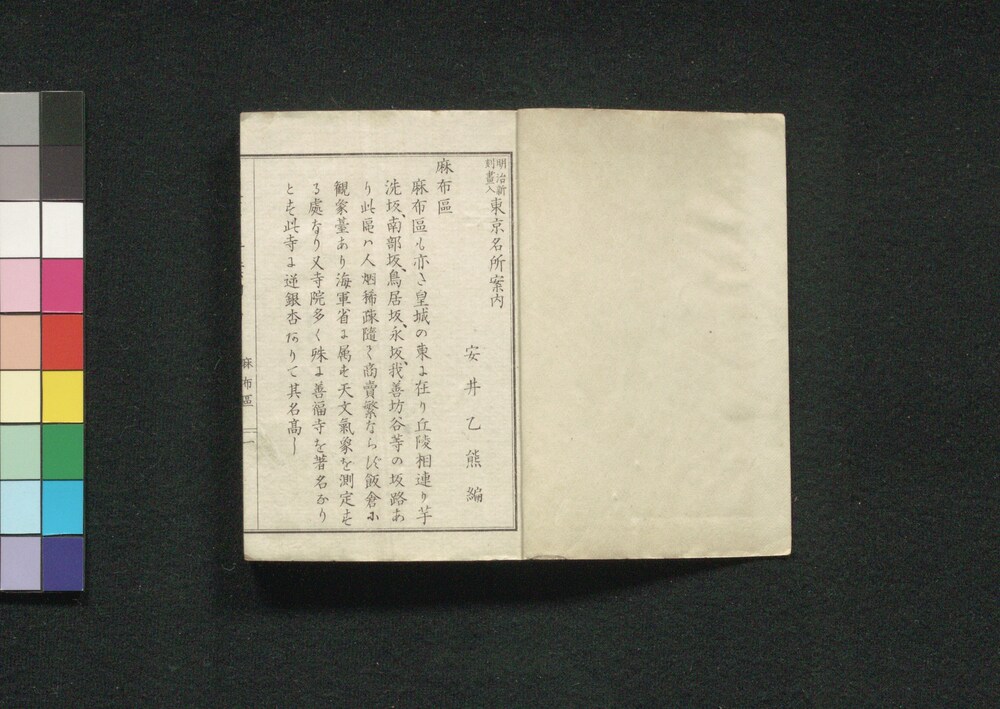 明治新刻畫入
東京名所案内
安井乙熊編
麻布區
麻布區も亦さ皇城の東に在り丘陵相連り芋
洗坂、南部坂、鳥居坂、永坂、我善坊谷等の坂路あ
り此區ハ人烟稀疎隨て商賣繁ならず飯倉に
観象臺あり海軍省に属す天文氣象を測定す
る處なり又寺院多く殊に善福寺を著名なり
とす此寺に逆銀杏ありて其名高し
麻布區
一